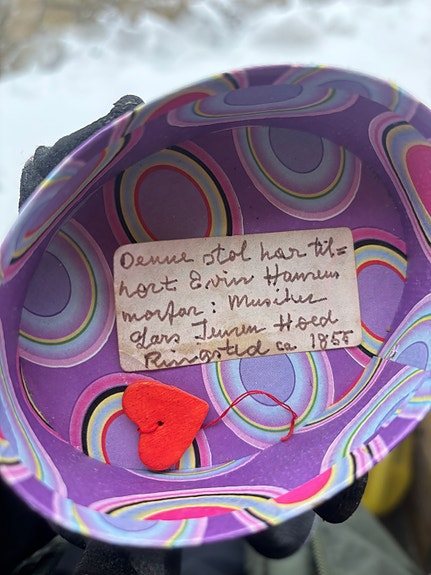 Denne stol har til=
hørt Evin Hansens
morfar: Musiker
Lars Jensen Hoed
Ringsted ca 1855